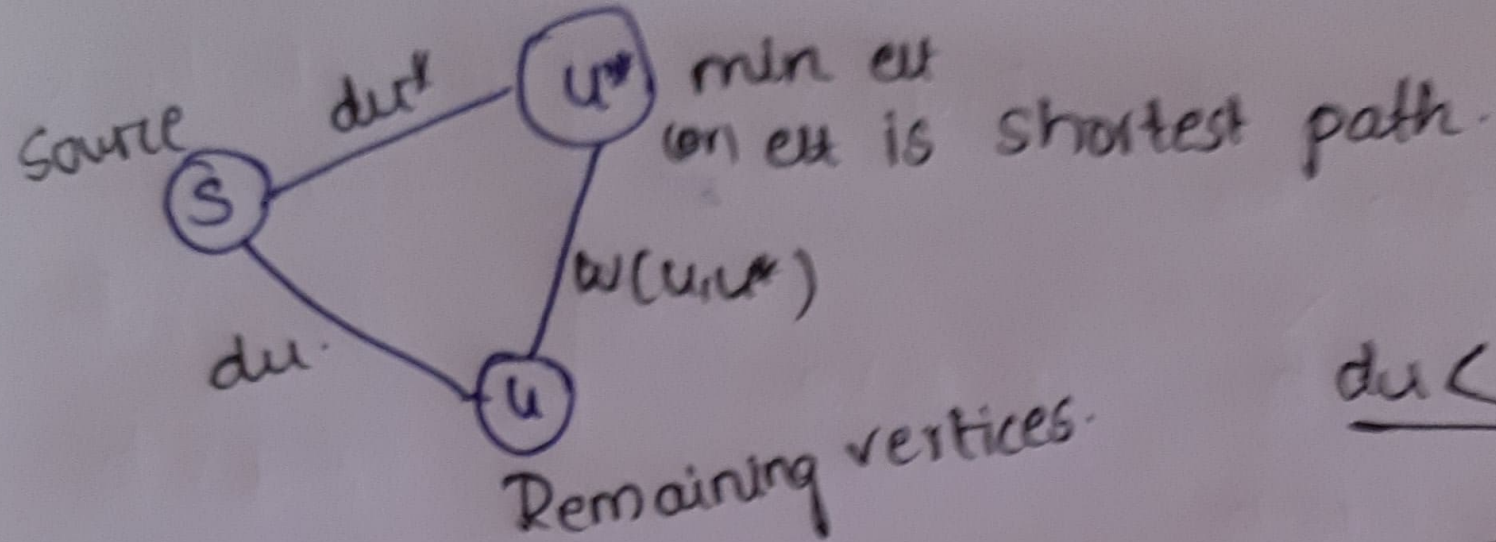 Source
S
du*
u*
min est
(or) est is shortest path.
w(u,u*)
du.
u
Remaining vertices.
du <